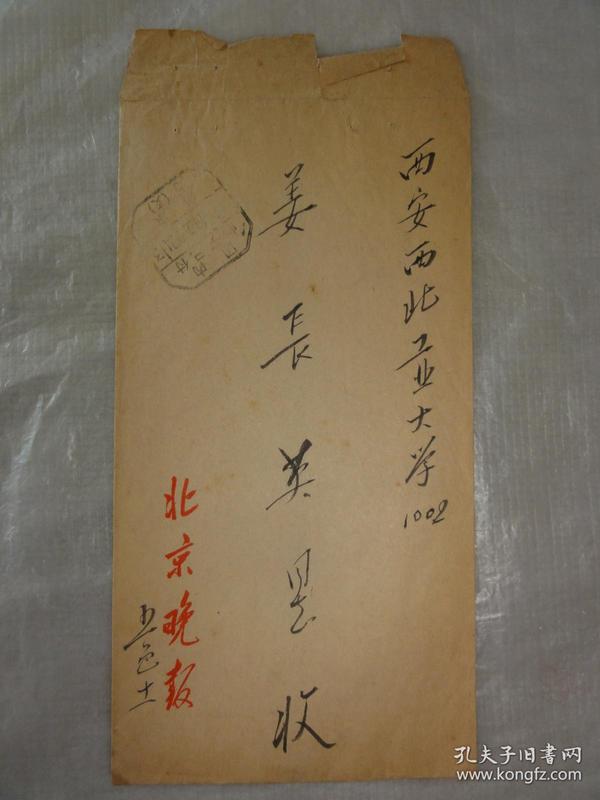 西安西北工业大学1002
姜长英同志收
北京晚报
五色土
孔夫子旧书网
www.kongfz.com